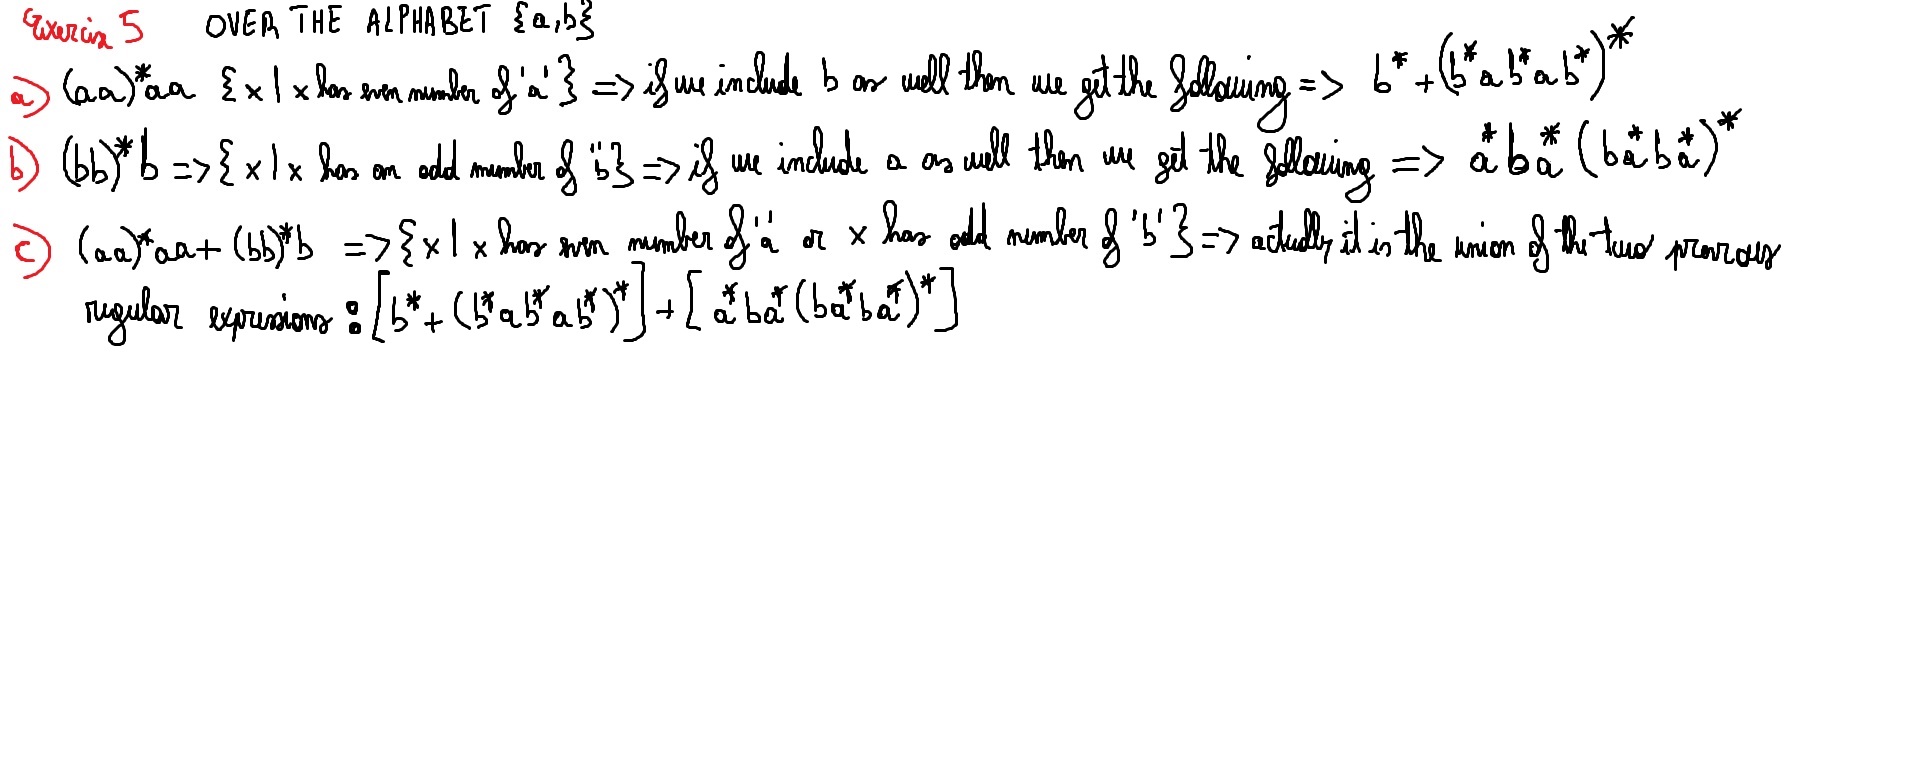 Exercise 5 OVER THE ALPHABET {a,b}
a) (aa)*aa {x | x has even number of 'a'} => if we include b as well then we get the following => b* + (b*ab*ab*)*
b) (bb)*b => {x | x has an odd number of 'b'} => if we include a as well then we get the following => a*ba*(ba*ba*)*
c) (aa)*aa + (bb)*b => {x | x has even number of 'a' or x has odd number of 'b'} => actually it is the union of the two previous
regular expressions : [b* + (b*ab*ab*)*] + [a*ba*(ba*ba*)*]